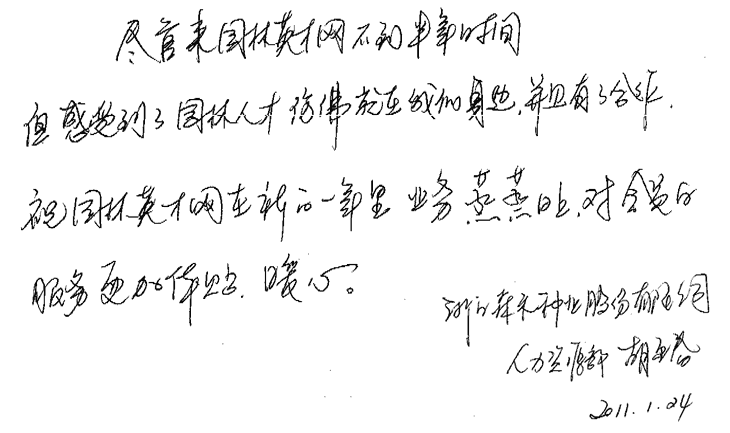 尽管来园林英才网不到半年时间
但感觉到了园林人才仿佛就在我们身边,并且有了合作.
祝园林英才网在新的一年里 业务蒸蒸日上,对会员的
服务更加体贴、暖心。
浙江森禾种业股份有限公司
人力资源部 胡
2011.1.24